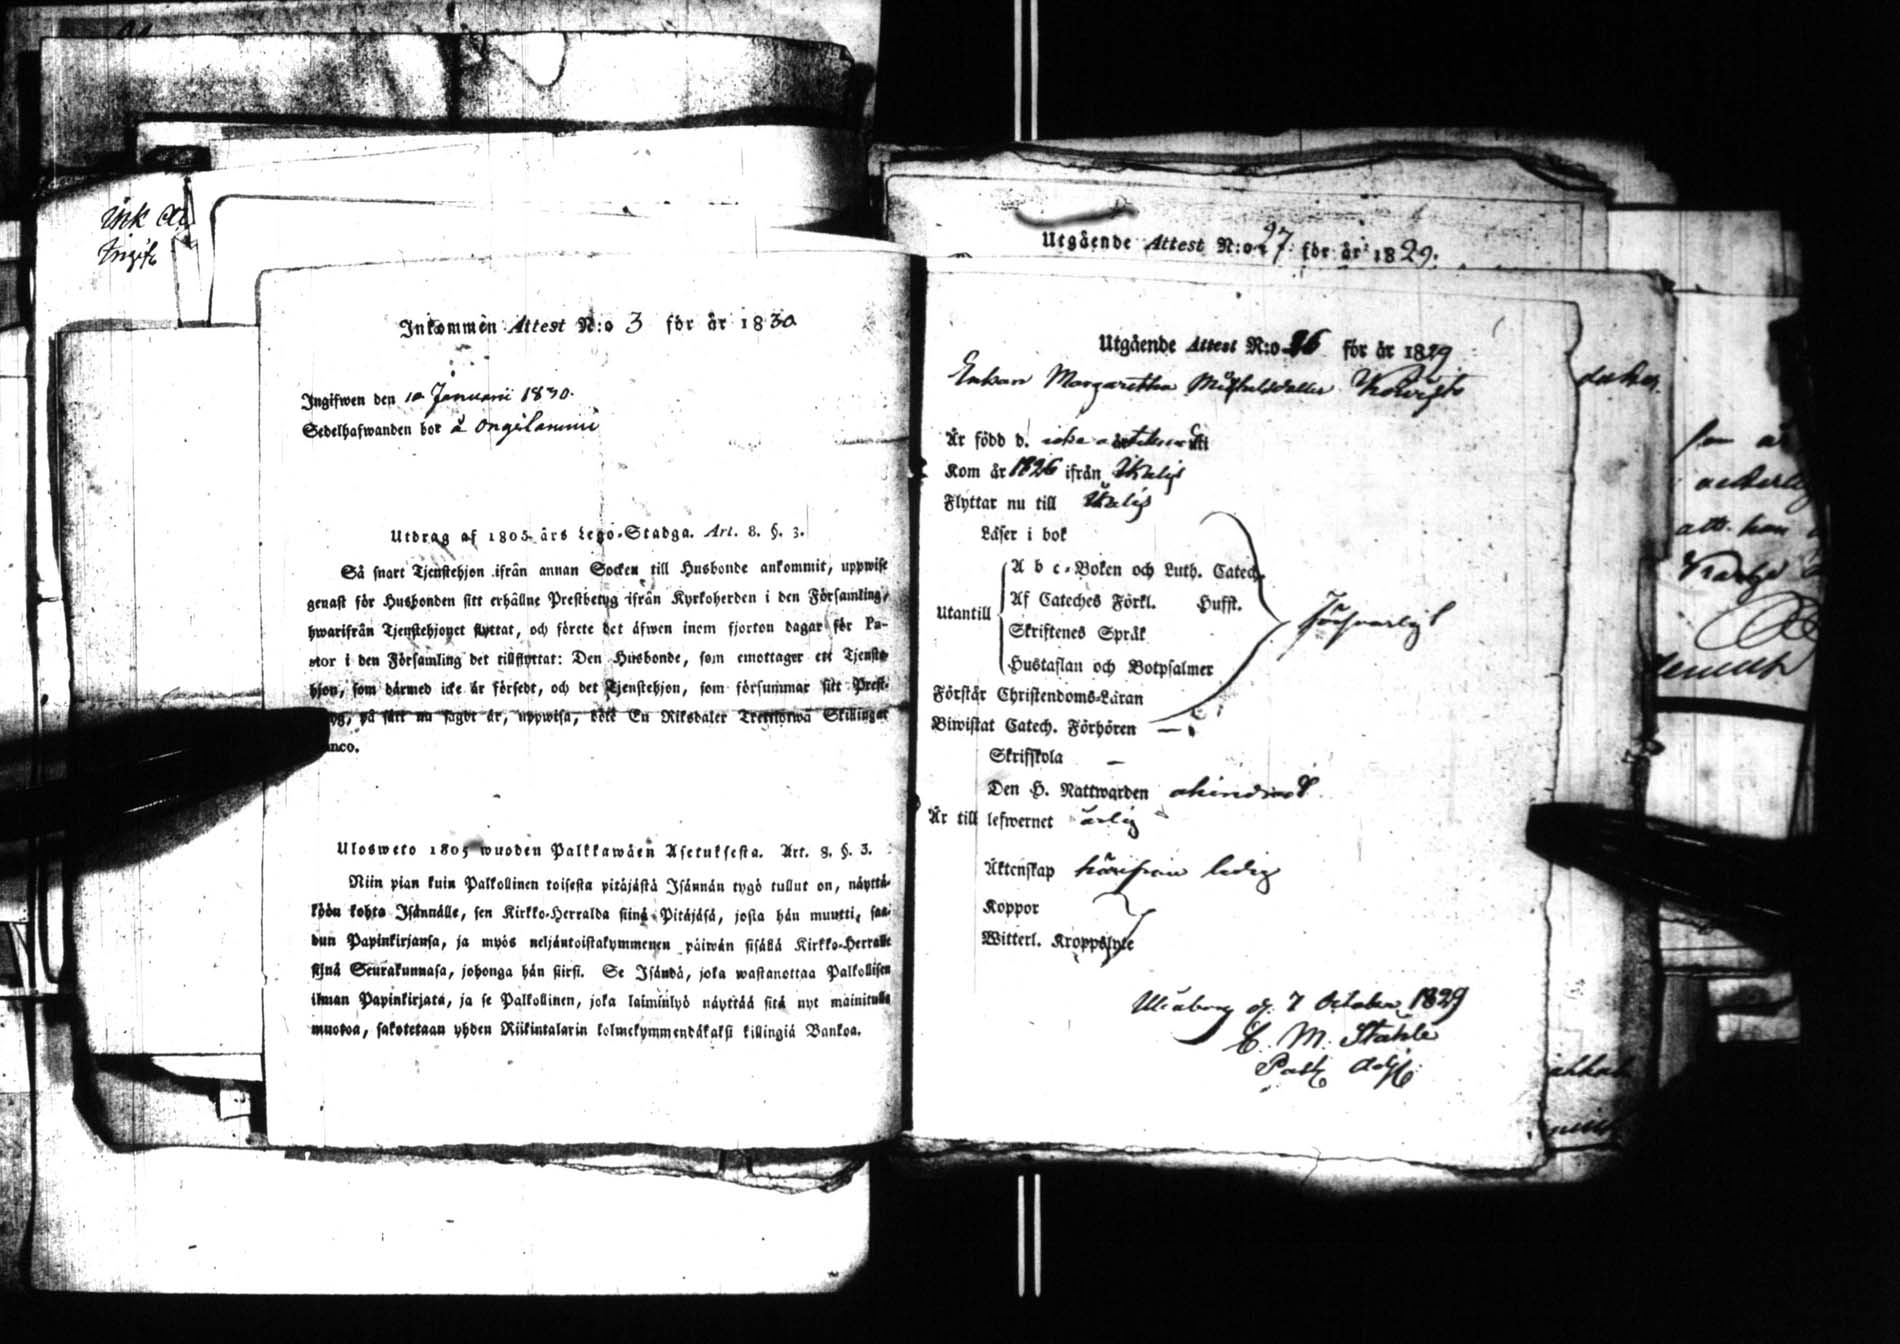 Ink
Ingif
Inkommen Attest N:o 3 för år 1830
Ingifwen den 10 Januarii 1830.
Sedelhafwanden bor å Ongilammi
Utdrag af 1805 års Lego-Stadga. Art. 8. §. 3.
Så snart Tjenstehjon ifrån annan Socken till Husbonde ankommit, uppwise
genast för Husbonden sitt erhållne Prestbetyg ifrån Kyrkoherden i den Församling,
hwarifrån Tjenstehjonet flyttat, och förete det äfwen inom fjorton dagar för Pa-
stor i den Församling det tillflyttat: Den Husbonde, som emottager ett Tjenste-
hjon, som dermed icke är försedt, och det Tjenstehjon, som försummar sitt Prest-
på sätt nu sagdt är, uppwisa, böte En Riksdaler Trettiotwå Skillingar
nco.
Ulosweto 1805 wuoden Palkkawäen Asetuksesta. Art. 8. §. 3.
Niin pian kuin Palkollinen toisesta pitäjästä Isännän tygö tullut on, näyttä-
köön kohta Isännälle, sen Kirkko-Herralda siinä Pitäjäsä, josta hän muutti, saa-
dun Papinkirjansa, ja myös neljäntoistakymmenen päiwän sisällä Kirkko-Herralle
siinä Seurakunnasa, johonga hän siirsi. Se Isändä, joka wastanottaa Palkollisen
ilman Papinkirjata, ja se Palkollinen, joka laiminlyö näyttää sitä nyt mainitulla
muotoa, sakotetaan yhden Riikintalarin kolmekymmendäkaksi killingiä Bankoa.
Utgående Attest N:o 27 för år 1829.
Utgående Attest N:o 26 för år 1829
Enkan Margaretha Michelsdotter
Är född d.
Kom år 1826 ifrån
Flyttar nu till
Läser i bok
Utantill
A b c-Boken och Luth. Catech.
Af Cateches Förkl. Hufst.
Skriftenes Språk
Hustaflan och Botpsalmer
Förswarligt
Förstår Christendoms-Läran
Biwistat Catech. Förhören —
Skriftskola —
Den H. Nattwarden ohindrad
Är till lefwernet ärlig
Äktenskap härifrån ledig
Koppor
Witterl. Kroppslyte
Uleåborg d. 7 October 1829
C. M. Ståhle
Past. Adj.